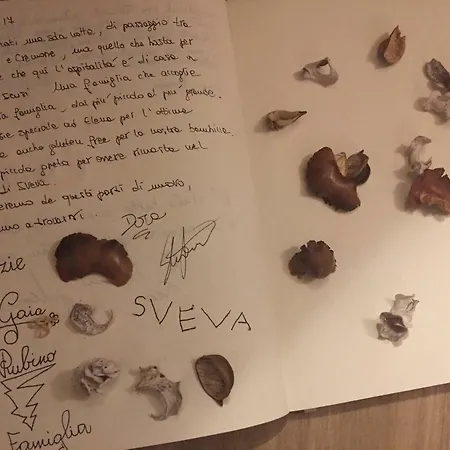 17
una sola volta, di passaggio tra
e Cremone, ma quello che basta per
e che qui l'ospitalità è di casa in
sensi. Una famiglia che accoglie
famiglia, dal più piccolo al più grande.
speciale ad Elena per l'ottima
anche gluten free per la nostra bambina.
piccola greta per essere rimasta nel
di Sveva.
remo da questi posti di nuovo,
a trovarvi.
Dora
zie
Gaia
SVEVA
Rubino
Famiglia